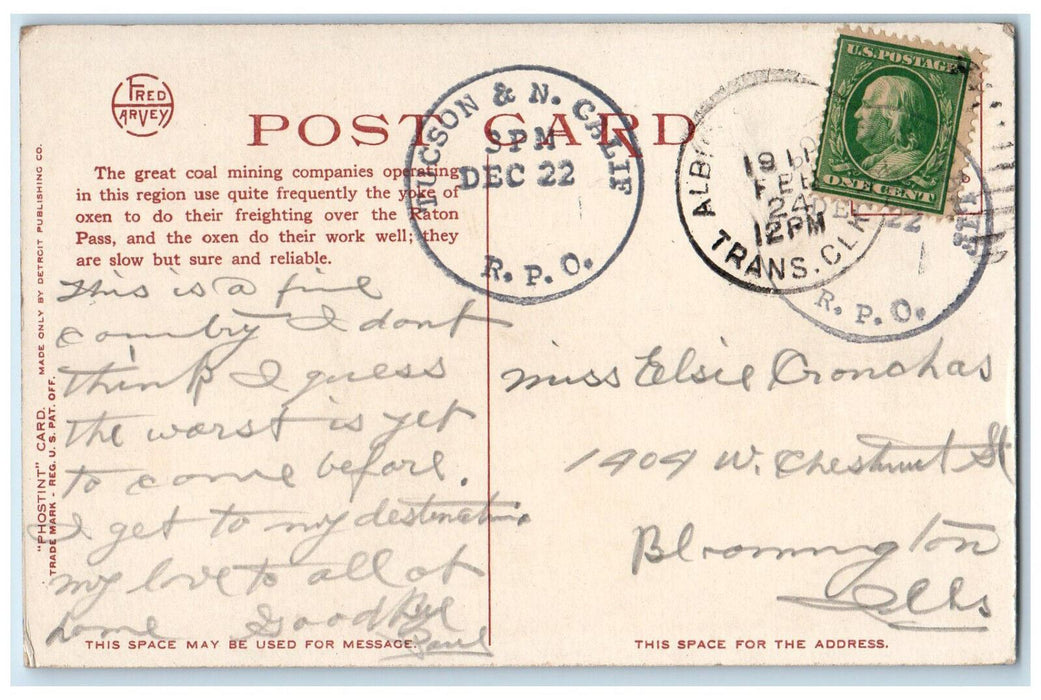 FRED
HARVEY
POST CARD
The great coal mining companies operating
in this region use quite frequently the yoke of
oxen to do their freighting over the Raton
Pass, and the oxen do their work well; they
are slow but sure and reliable.
"PHOSTINT" CARD. MADE ONLY BY DETROIT PUBLISHING CO.
TRADE MARK - REG. U. S. PAT. OFF.
TUCSON & N. CALIF
3PM
DEC 22
R. P. O.
TRANS. CLK
24
12PM
DEC 22
R. P. O.
U.S. POSTAGE
ONE CENT
This is a fine
country I dont
think I guess
the worst is yet
to come before.
I get to my destination
my love to all at
home Good Bye
Miss Elsie Cronchas
1404 W. Chestnut St
Bloomington
Ills
THIS SPACE MAY BE USED FOR MESSAGE.
THIS SPACE FOR THE ADDRESS.